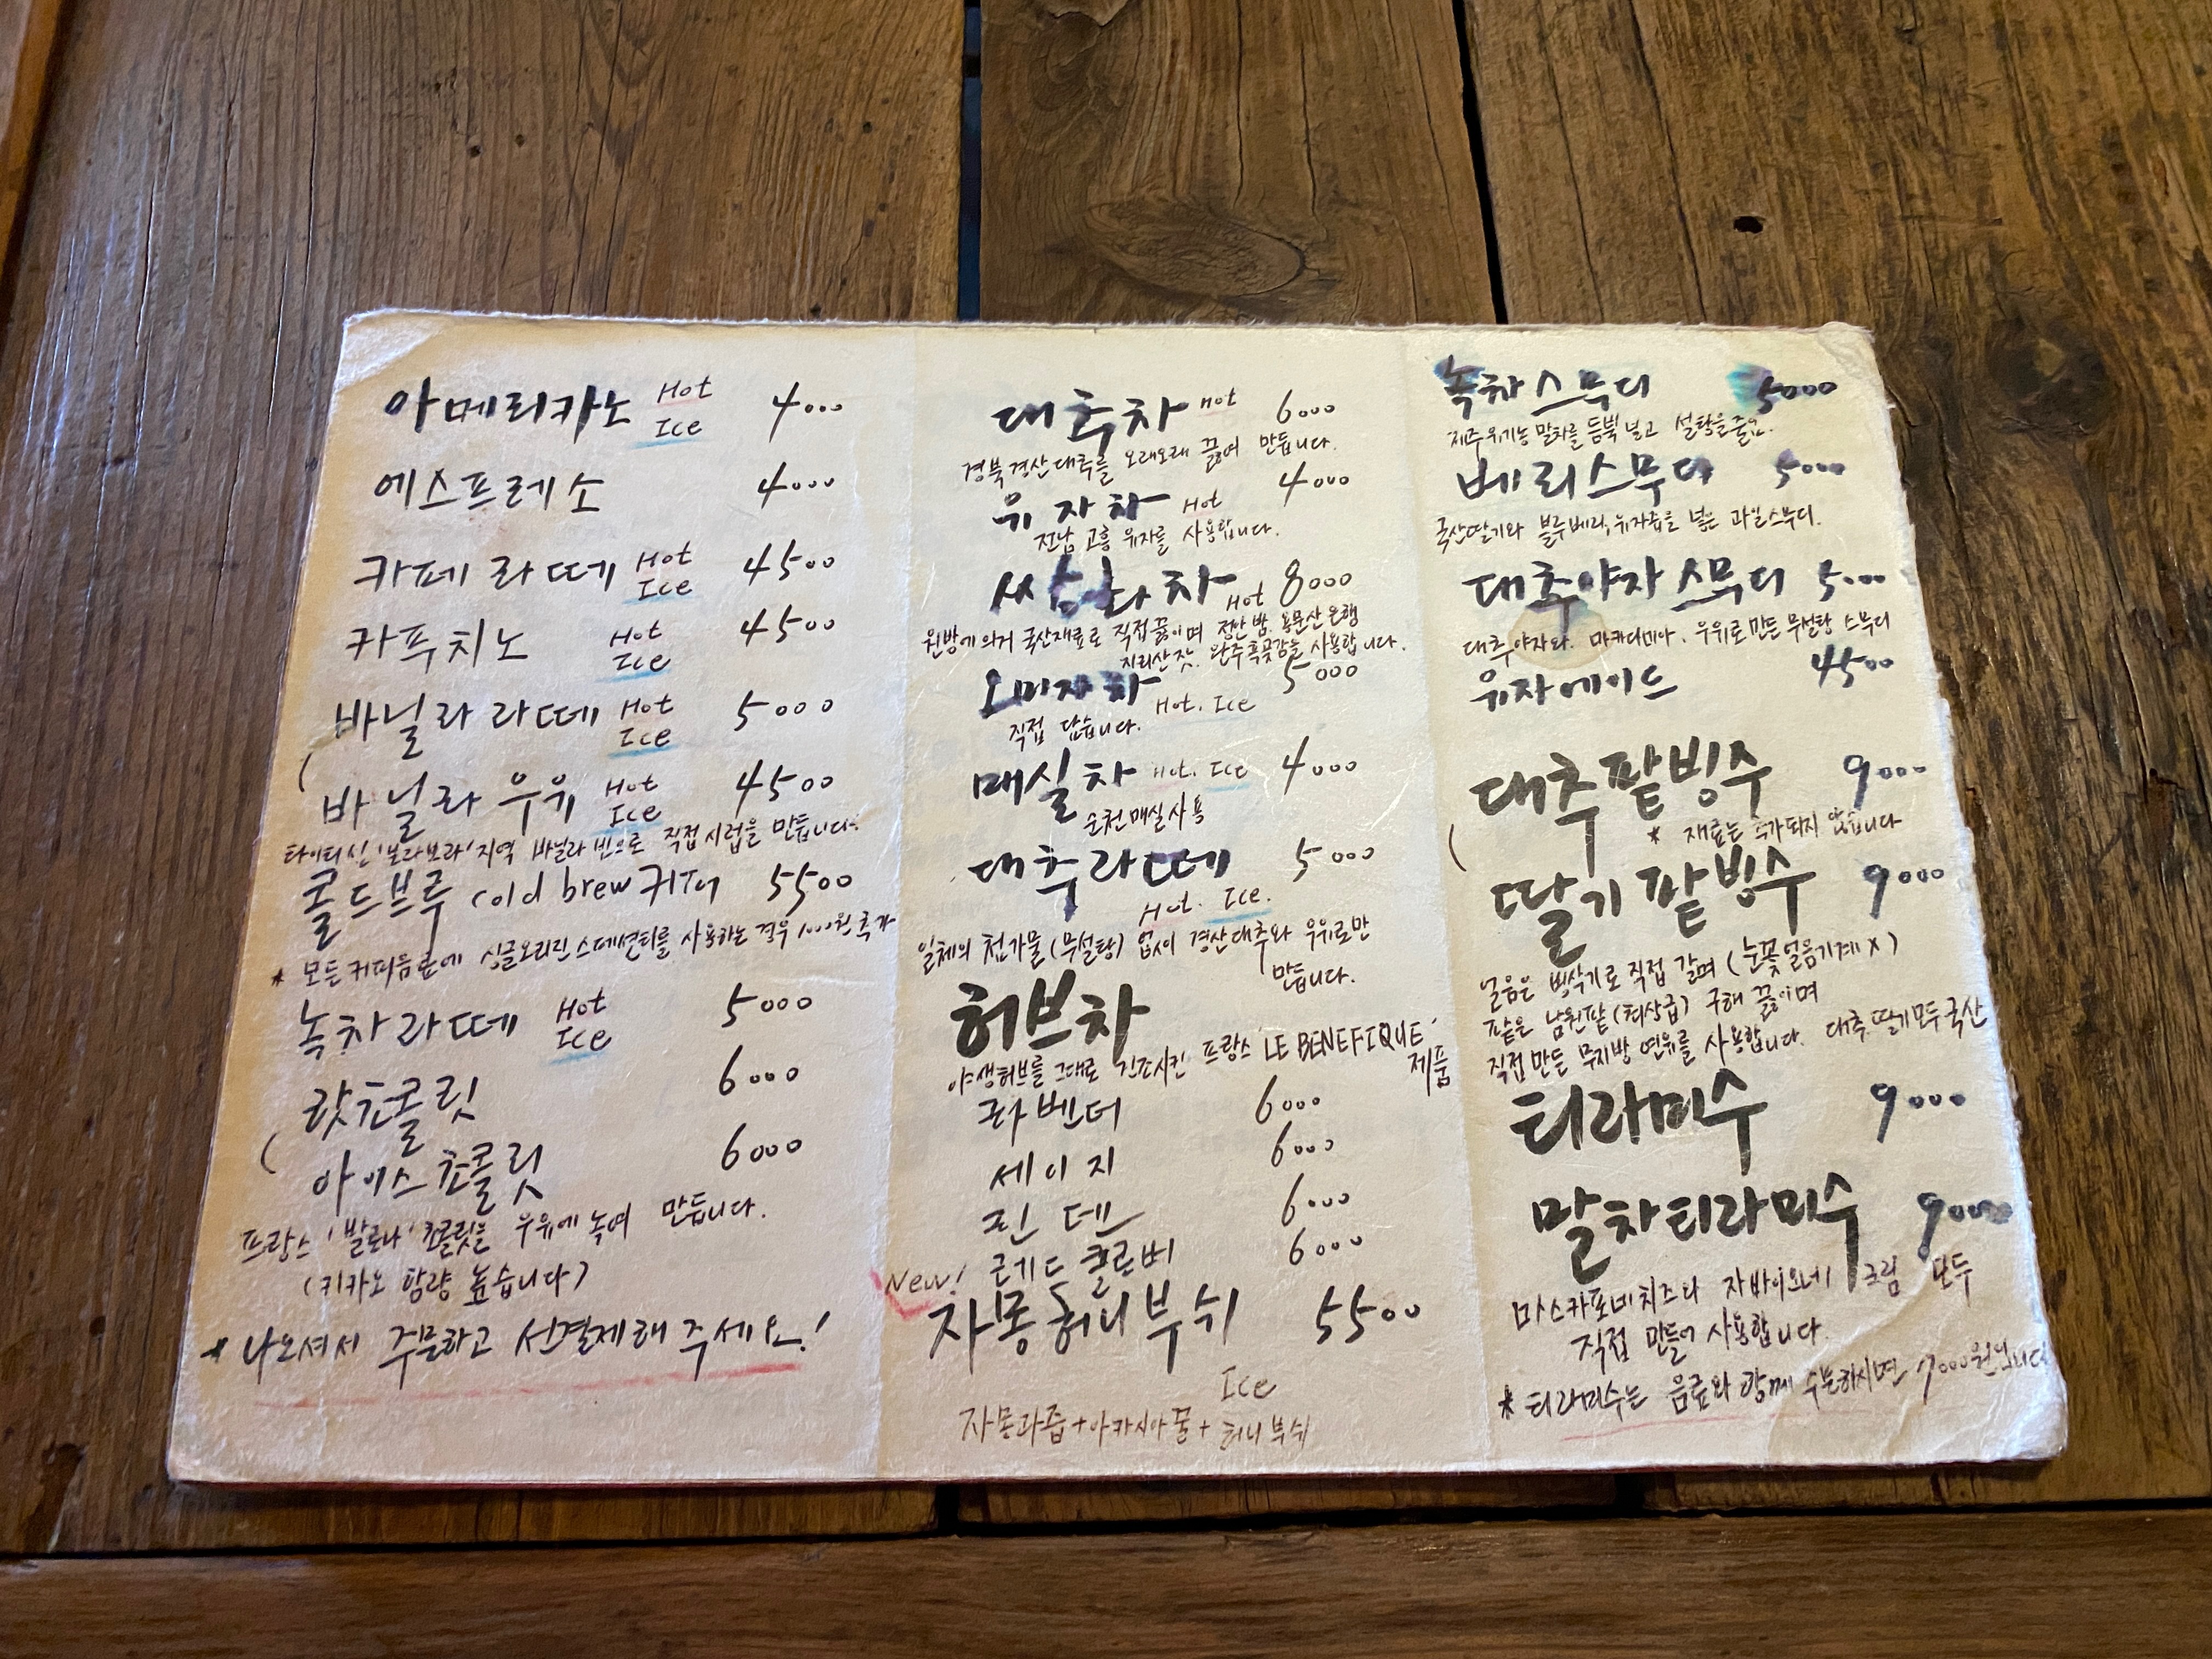 아메리카노 Hot Ice 4000
에스프레소 4000
카페 라떼 Hot Ice 4500
카푸치노 Hot Ice 4500
바닐라 라떼 Hot Ice 5000
바닐라 우유 Hot Ice 4500
타이티산 '보라보라' 지역 바닐라 빈으로 직접 시럽을 만듭니다.
콜드브루 cold brew 커피 5500
* 모든 커피음료에 싱글오리진 스페셜티를 사용하는 경우 1000원 추가
녹차라떼 Hot Ice 5000
핫초콜릿 6000
아이스 초콜릿 6000
프랑스 '발로나' 초콜릿을 우유에 녹여 만듭니다.
(카카오 함량 높습니다)
* 나오셔서 주문하고 선결제해 주세요!
대추차 Hot 6000
경북 경산대추를 오래오래 끓여 만듭니다.
유자차 Hot 4000
전남 고흥 유자를 사용합니다.
쌍화차 Hot 8000
원방에 의거 국산재료로 직접 끓이며 정안 밤, 용문산 은행
지리산 잣, 완주 흑곶감을 사용합니다.
오미자차 5000
직접 담습니다. Hot. Ice
매실차 Hot. Ice 4000
순천매실 사용
대추라떼 5000
Hot. Ice.
일체의 첨가물(무설탕) 없이 경산대추와 우유로만
만듭니다.
허브차
야생허브를 그대로 건조시킨 프랑스 'LE BENEFIQUE'
제품
라벤더 6000
세이지 6000
린덴 6000
레드클로버 6000
New! 자몽허니부쉬 5500
Ice
자몽과즙+아카시아꿀+허니부쉬
녹차스무디 5000
제주유기농 말차를 듬뿍 넣고 설탕을 줄임.
베리스무디 5000
국산딸기와 블루베리, 유자즙을 넣은 과일스무디.
대추야자 스무디 5000
대추야자와 마카다미아, 우유로 만든 무설탕 스무디
유자에이드 4500
대추팥빙수 9000
* 재료는 추가되지 않습니다
딸기팥빙수 9000
얼음은 빙삭기로 직접 갈며 (눈꽃얼음기계 X)
팥은 남원팥(최상급) 구해 끓이며
직접 만든 무지방 연유를 사용합니다. 대추, 딸기 모두 국산
티라미수 9000
말차티라미수 9000
마스카포네치즈와 자바이오네 크림 모두
직접 만들어 사용합니다.
* 티라미수는 음료와 함께 주문하시면 7000원입니다